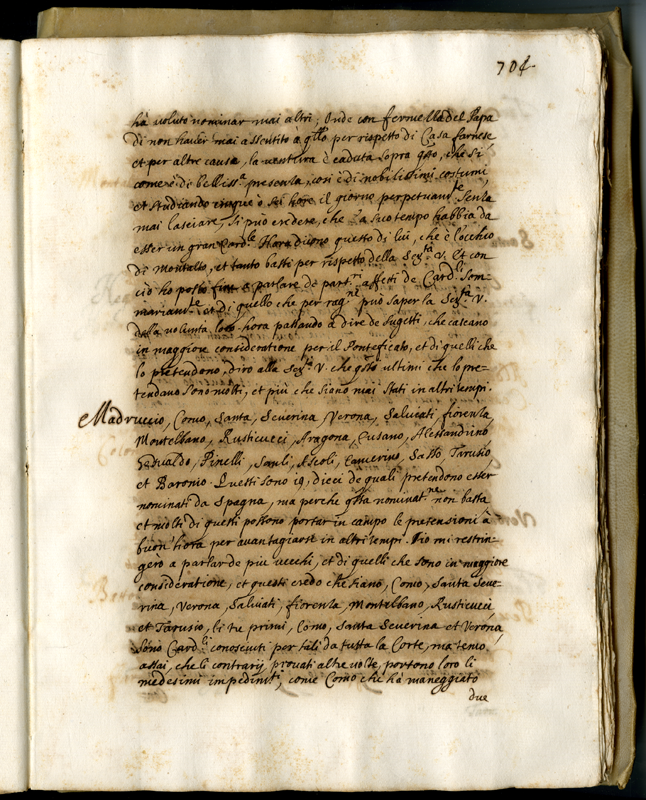 704
hà voluto nominar mai altri; Onde con fermezza del Papa
di non hauer mai assentito à q̃llo per rispetto di Casa farnese
et per altre cause, la uentura è caduta sopra q̃sto, che si
come è di belliss.a presenza, così è di nobilissimi costumi,
et studiando cinque ò sei hore il giorno perpetuam.te senza
mai lasciare, si può credere, che a suo tempo habbia da
esser un gran Card.le Hora dicono questo di lui, che è l'occhio
di Montalto, et tanto basti per rispetto della Ser.tà V. Et con
ciò ho posto fine à parlare de part.ri affetti de Card.li som-
mariam.te et di quello che per rag.ne può saper la Ser.tà V.
della uolontà loro hora passando à dire de sugetti, che cascano
in maggiore consideratione per il Ponteficato, et di quelli che
lo pretendono, dirò alla Ser.tà V. che q̃sti ultimi che lo pre-
tendano sono molti, et più che siano mai stati in altri tempi.
Madruccio, Como, Santa, Severina, Verona, Salviati, fiorenza,
Montelbano, Rusticucci, Aragona, Cusano, Alessandrino
Gesualdo, Pinelli, Sauli, Ascoli, Camerino, Sasso, Tarusio
et Baronio. Questi sono 19, dieci de quali pretendono esser
nominati da Spagna, ma perche q̃sta nominat.ne non basta
et molti di questi possono portar in campo le pretensioni à
buon'hora per auantagiarse in altri tempi. Io mi restrin-
gerò a parlar de più uecchi, et di quelli che sono in maggiore
consideratione, et questi credo che siano, Como, Santa Seue-
rina, Verona, Salviati, fiorenza, Montalbano, Rusticucci
et Tarusio, li tre primi, Como, Santa Severina et Verona,
sono Card.li conosciuti per tali da tutta la Corte, ma temo
assai, che li contrarij prouati altre uolte, portono loro li
medesimi impedim.ti, come Como che hà maneggiato
due